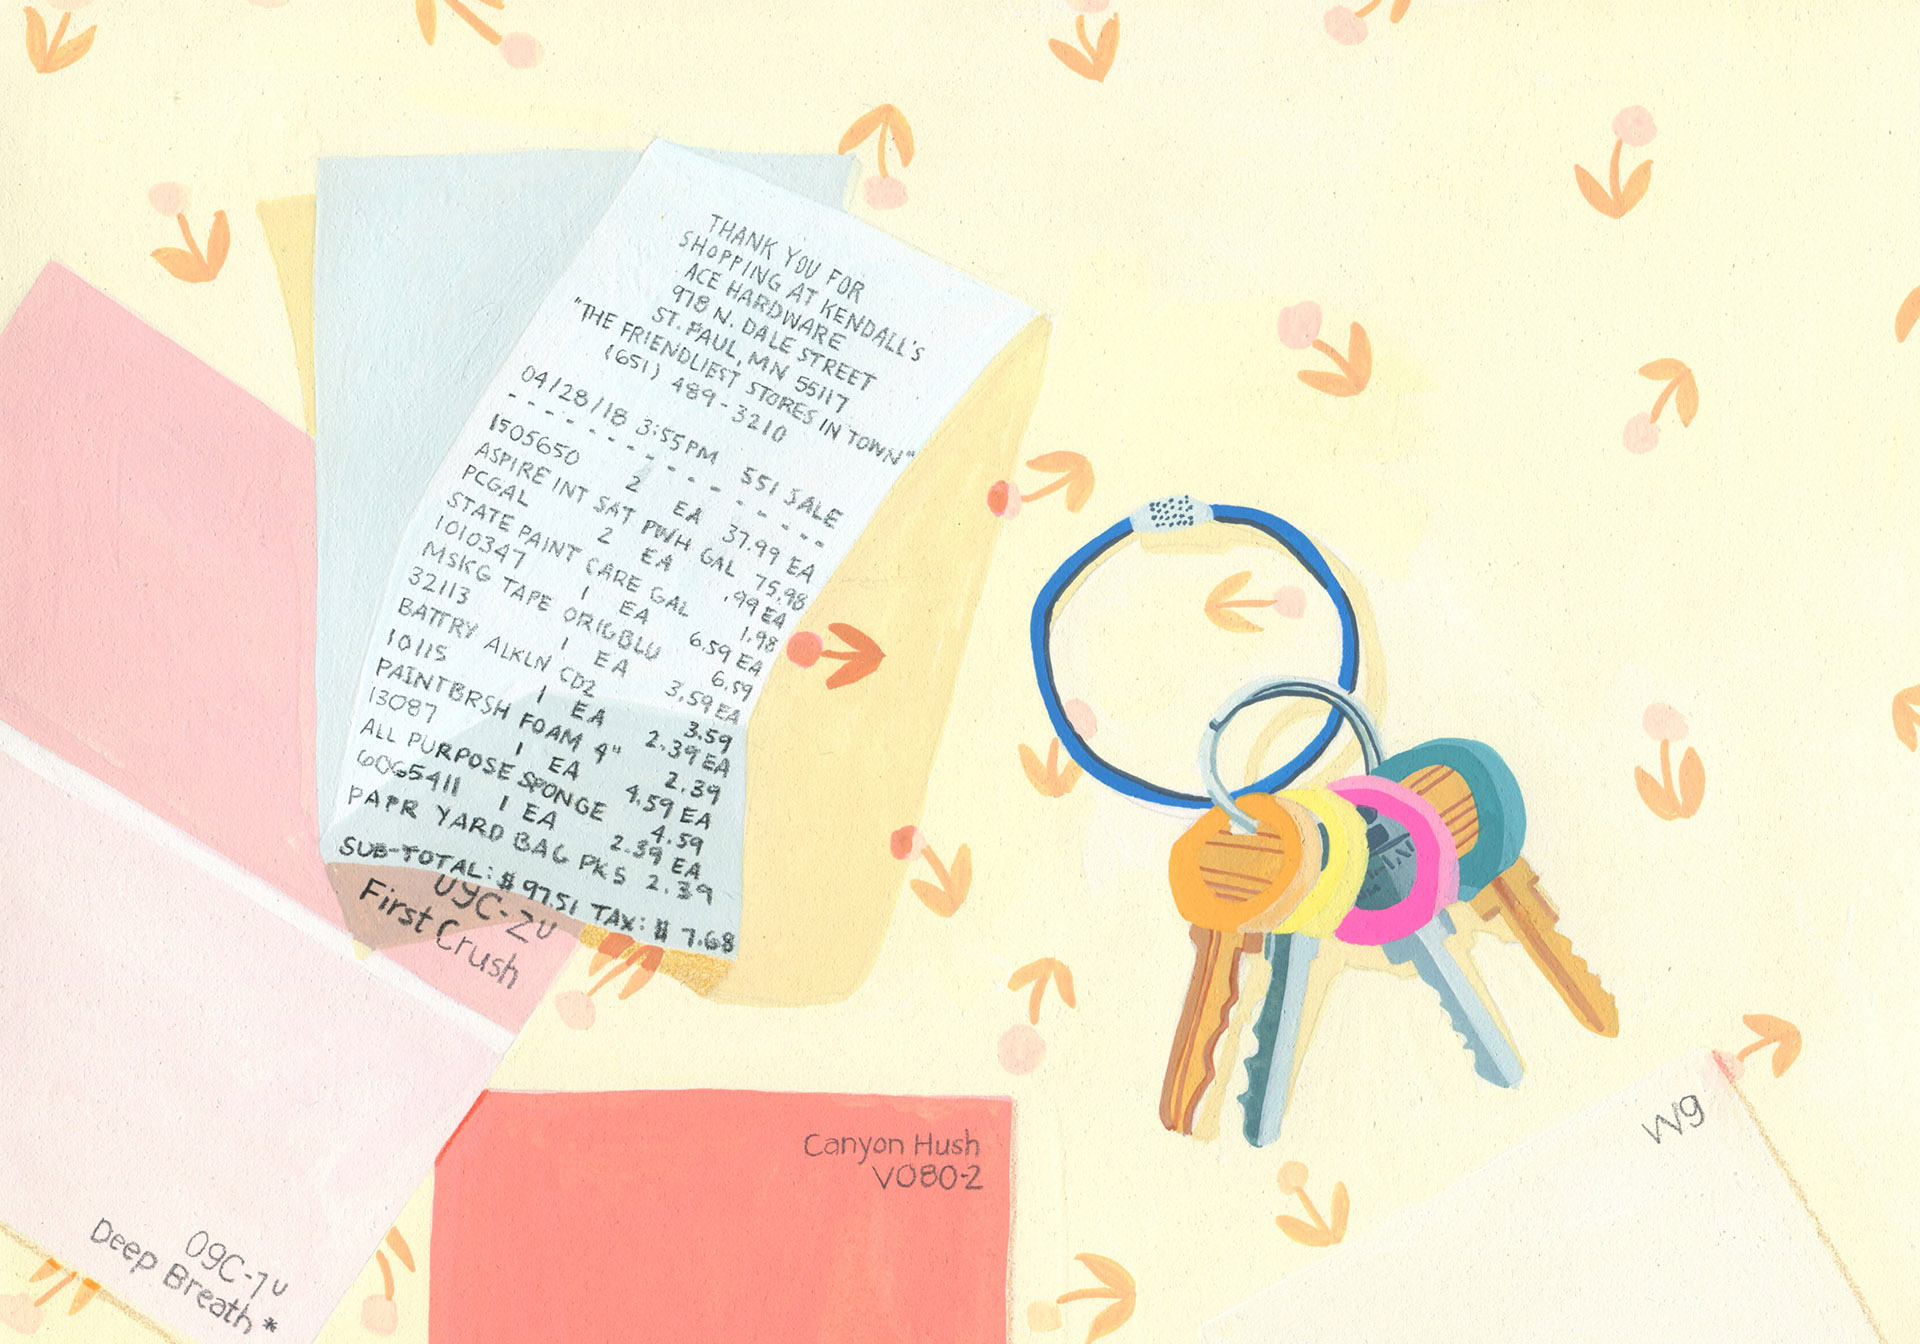 THANK YOU FOR
SHOPPING AT KENDALL'S
ACE HARDWARE
978 N. DALE STREET
ST. PAUL, MN 55117
"THE FRIENDLIEST STORES IN TOWN"
(651) 489-3210
04/28/18 3:55PM 551 SALE
- - - - - - - - - - - - - - - - - -
1505650 2 EA 37.99 EA
ASPIRE INT SAT PWH GAL 75.98
PCGAL 2 EA .99 EA
STATE PAINT CARE GAL 1.98
1010347 1 EA 6.59 EA
MSKG TAPE ORIGBLU 6.59
32113 1 EA 3.59 EA
BATTRY ALKLN CD2 3.59
10115 1 EA 2.39 EA
PAINTBRSH FOAM 4" 2.39
13087 1 EA 4.59 EA
ALL PURPOSE SPONGE 4.59
6065411 1 EA 2.39 EA
PAPR YARD BAG PKS 2.39
SUB-TOTAL: $97.51 TAX: $ 7.68
09C-2U
First Crush
09C-1U
Deep Breath*
Canyon Hush
V080-2